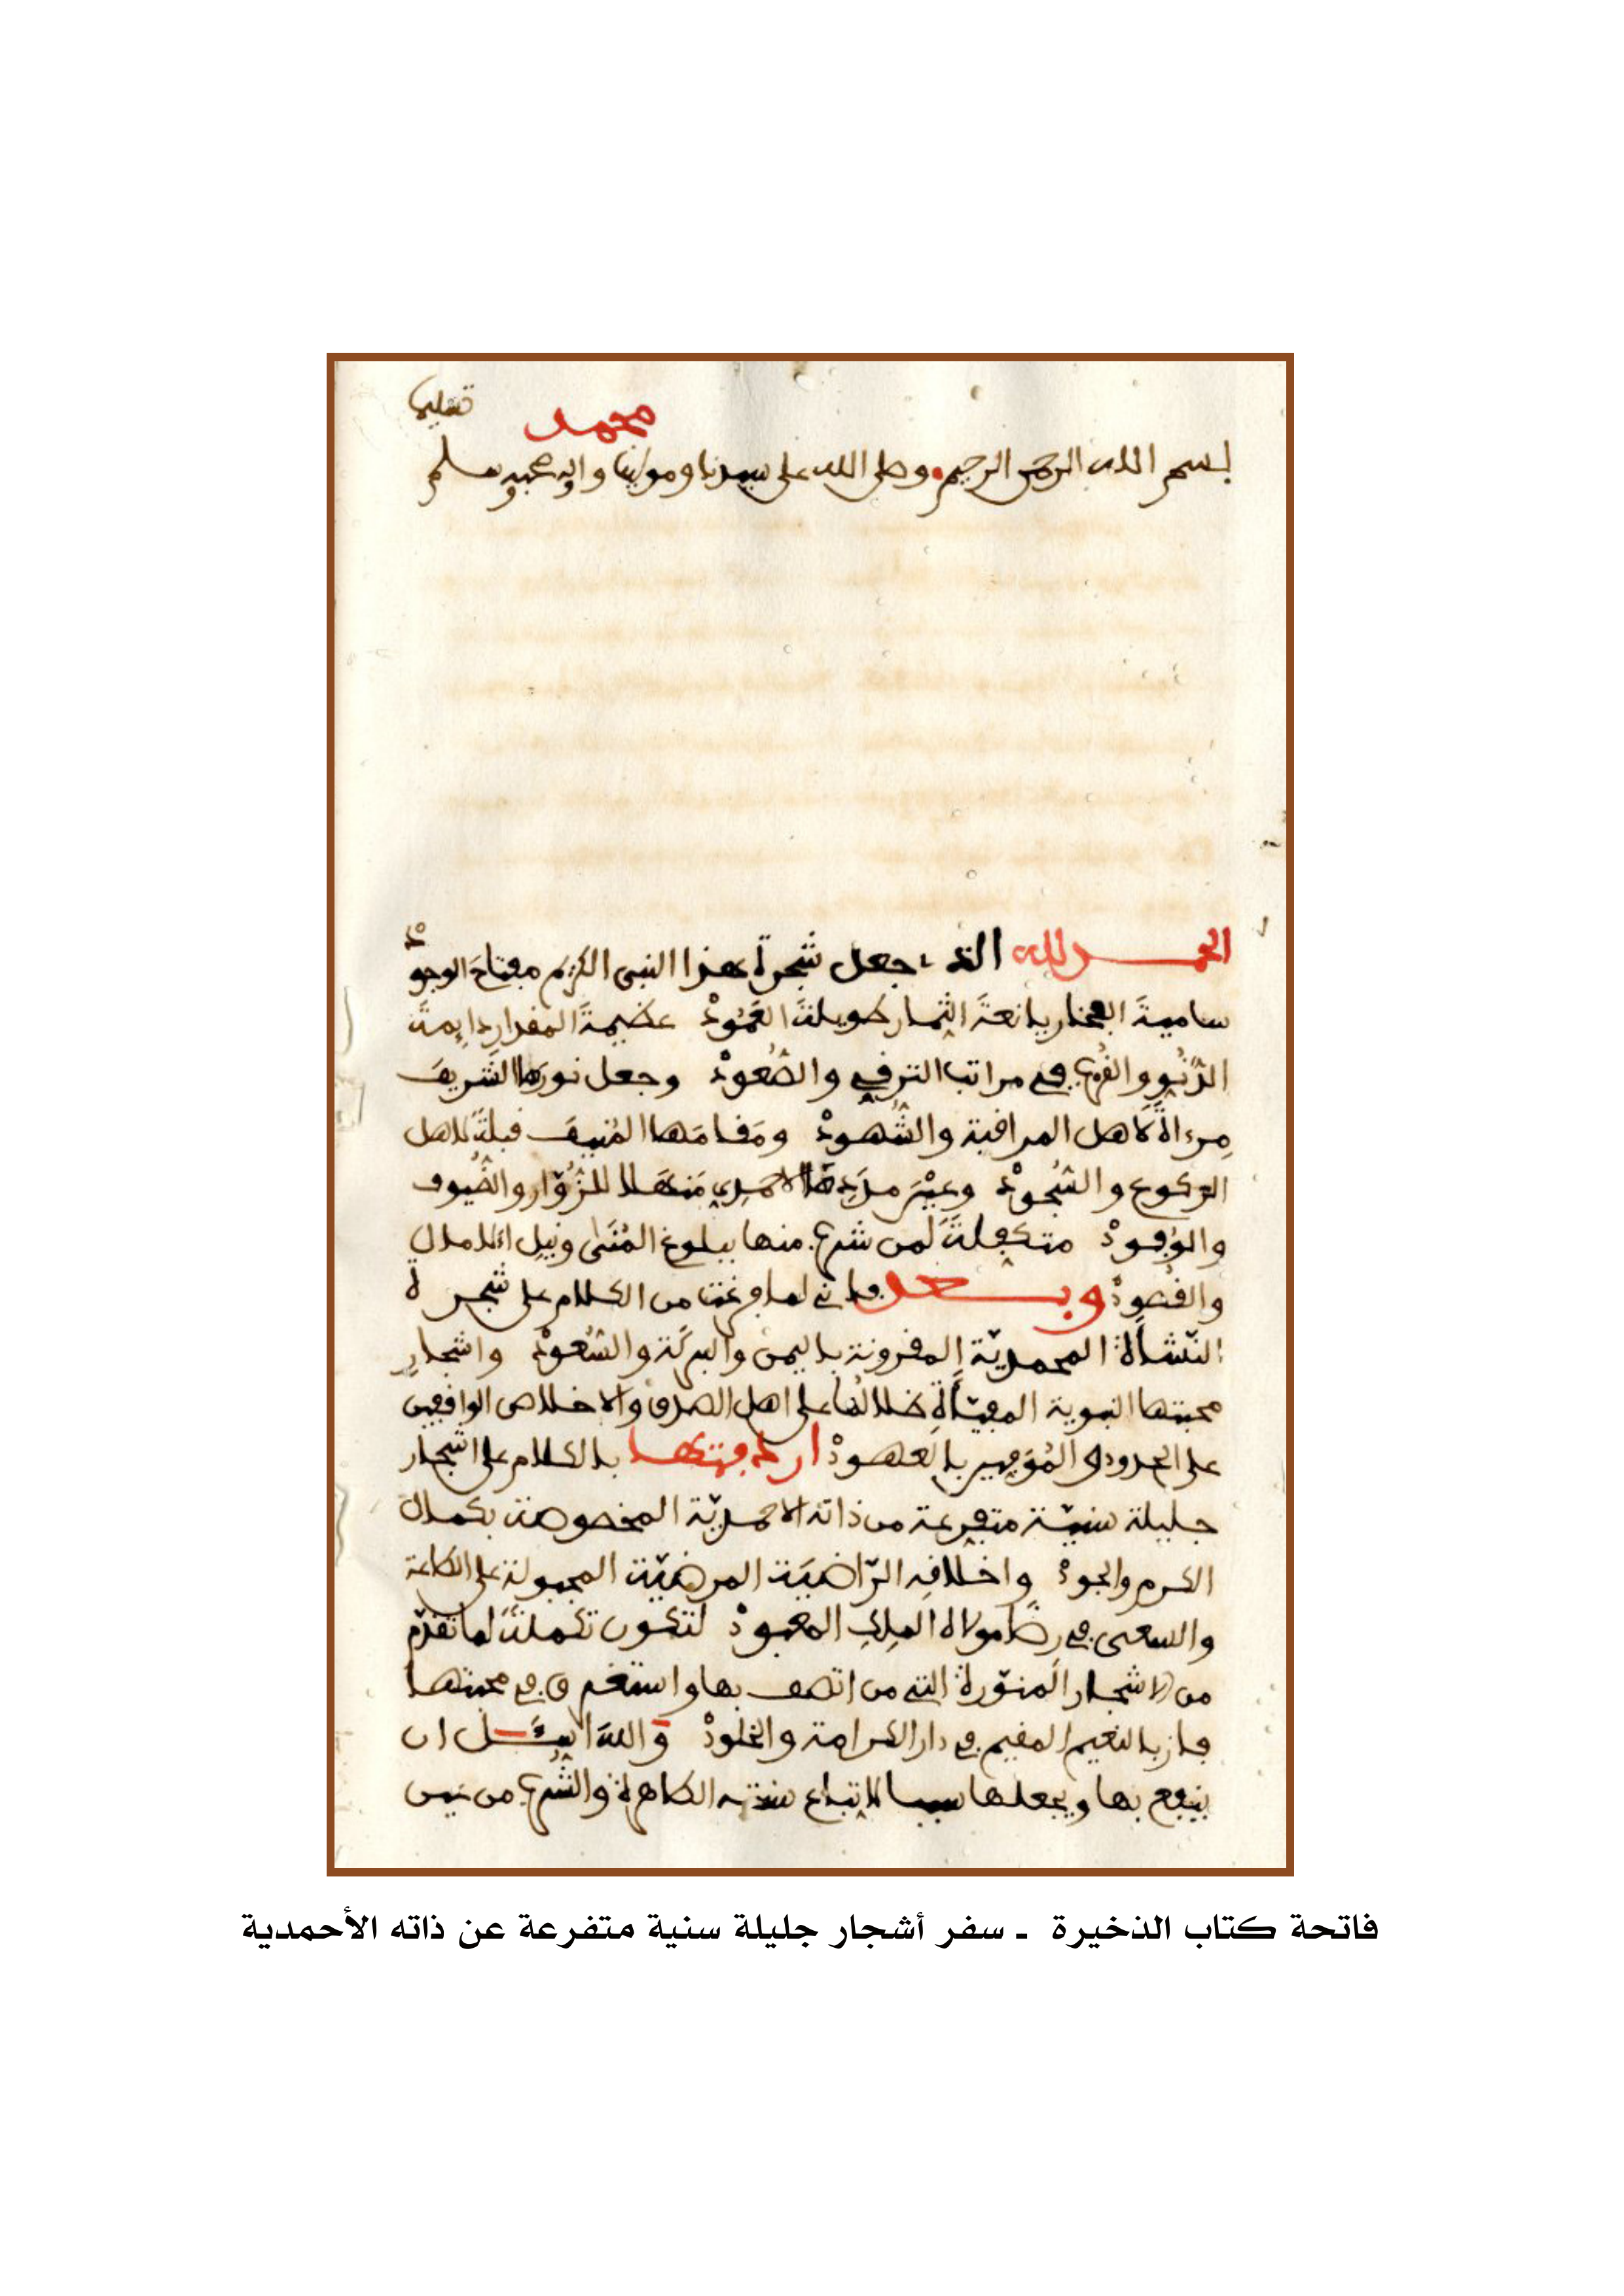 تسليما
محمد
بسم الله الرحمن الرحيم وصلى الله على سيدنا ومولينا واله وصحبه وسلم
الحمد لله الذى جعل شجرة هذا النبى الكريم مفتاح الوجودْ
سامية الفخار يانعةَ الثمار طويلةَ العَمُودْ عظيمةَ المقدار دايمةَ
الدُّنُوِ والقُرْبِ في مراتب الترقي والصُّعودْ وجعل نورها الشريفَ
مِرءاةً لاهل المراقبة والشُّهودْ ومَقامَها المُنيفَ قبلةً لاهل
الركوع والسُّجودْ وعيْنَ مدَدِهَا الاحمدي مَنهَلا للزُّوّار والضُّيوف
والوُفودْ متكفلةً لمن شرب منها ببلوغ المُنَى ونيل الامال
والقصودْ وبعد فانى لما فرغت من الكلام على شجرة
النّشأة المحمديّة المقرونة باليمن والبركة والسُّعودْ واشجارِ
محبتها النبوية المفيّأةِ ظلالُها على اهل الصدق والاخلاص الواقفين
على الحدود والمُوَفين بالعهودْ اردفتها بالكلام على اشجار
جليلة سنيّة متفرعة من ذاته الاحمديّة المخصوصة بكمال
الكرم والجودْ واخلاقِه الرّاضيَة المرضيّة المجبولة على الطاعة
والسعى في رِضَا مولاه الملِكِ المعبودْ لتكون تكملةً لما تقدّم
من الاشجار المنوّرة التى من اتصف بها واستغرق في محبتها
فاز بالنعيم المقيم في دار الكرامة والخلودْ وَاللهَ اسئَل ان
ينفع بها ويجعلها سببا لاتباع سنته الطاهرة والشُّرب من عين
فاتحة كتاب الذخيرة ـ سفر أشجار جليلة سنية متفرعة عن ذاته الأحمدية